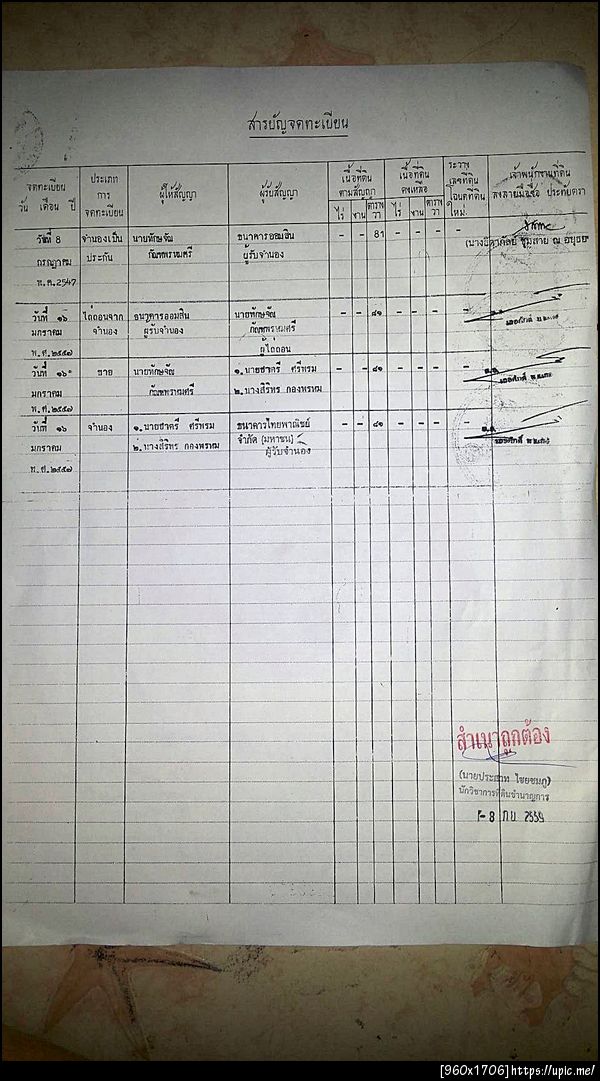 สารบัญจดทะเบียน
จดทะเบียน
วัน เดือน ปี
ประเภท
การ
จดทะเบียน
ผู้ให้สัญญา
ผู้รับสัญญา
เนื้อที่ดิน
ตามสัญญา
ไร่ งาน ตาราง
วา
เนื้อที่ดิน
คงเหลือ
ไร่ งาน ตาราง
วา
ระวาง
เลขที่ดิน
โฉนดที่ดิน
ใหม่
เจ้าพนักงานที่ดิน
ลงลายมือชื่อ ประทับตรา
วันที่ 8 จำนองเป็น ธนาคารออมสิน - - 81 - - - -
กรกฎาคม ประกัน ผู้รับจำนอง
พ.ศ.2547
วันที่ ๑๖ ไถ่ถอนจาก ธนาคารออมสิน - - ๘๑ - - - -
มกราคม จำนอง ผู้รับจำนอง
พ.ศ.๒๕๕๗ ผู้ไถ่ถอน
วันที่ ๑๖ ขาย ๑.นายชาตรี ศรีพรม - - ๘๑ - - - -
มกราคม ๒.นางสิริพร กองพรหม
พ.ศ.๒๕๕๗
วันที่ ๑๖ จำนอง ๑.นายชาตรี ศรีพรม ธนาคารไทยพาณิชย์ - - ๘๑ - - - -
มกราคม ๒.นางสิริพร กองพรหม จำกัด (มหาชน)
ผู้รับจำนอง
พ.ศ.๒๕๕๗
สำเนาถูกต้อง
นักวิชาการที่ดินชำนาญการ
- 8 กย 2559
[960x1706]https://upic.me/